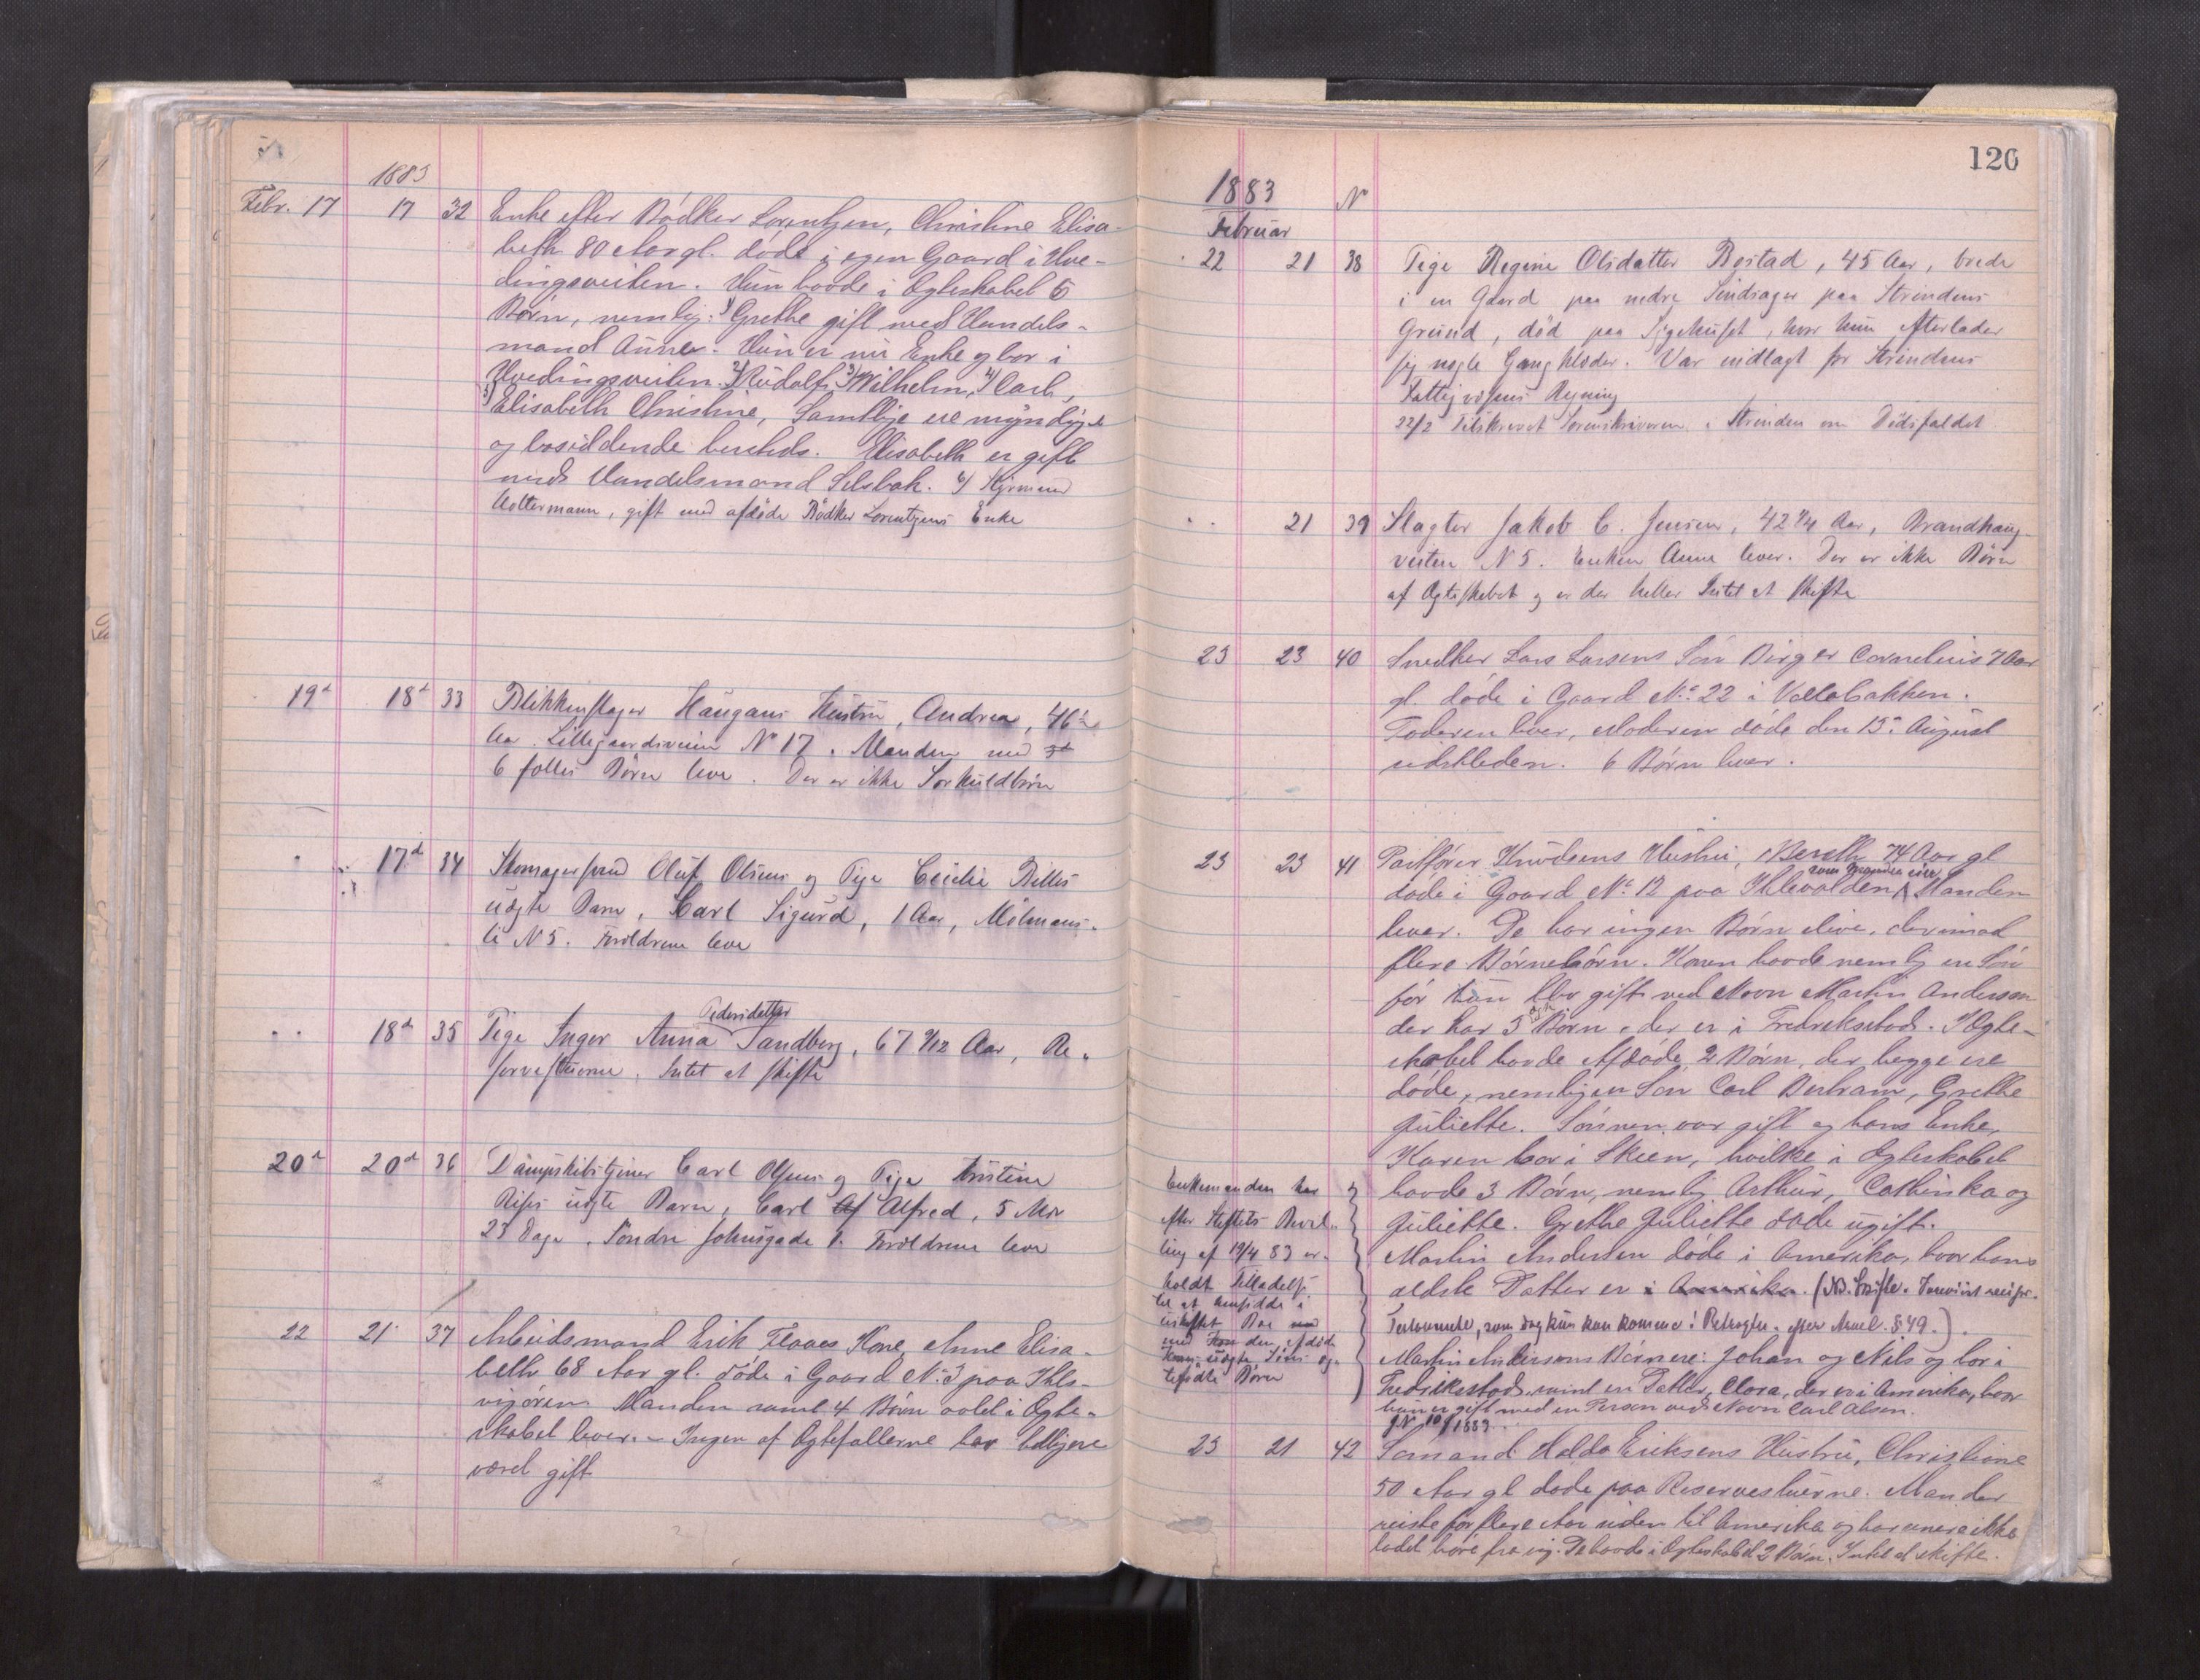 1883
Febr. 17 17 32 Enke efter Bödker Lorentzen, Christine Elisa-
beth 80 Aar gl. döde i egen Gaard i Hve-
dingsveiten. Hun havde i Ægteskabet 6
Börn, nemlig: 1) Grethe gift med Handels-
mand Aune. Hun er nu Enke og bor i
Hvedingsveiten. 2) Rudolf, 3) Wilhelm, 4) Carl,
5) Elisabeth Christine, Samtlige ere myndige
og bosiddende hersteds. Elisabeth er gift
med Handelsmand Selsbak. 6)
gift med afdöde Bödker Lorentzens Enke
19d 18d 33 Blikkenslager Haugans Hustru, Andrea, 46
Aar. Lillegaardsveiten No 17. Manden med
6 fælles Börn leve. Der er ikke Særkuldbörn
17d 34 Skomagersvend Oluf Olsens og Pige Cecilie Billes
uægte Barn, Carl Sigurd, 1 Aar, Mölmans-
N 5. Forældrene leve
18d 35 Pige Inger Anna Pedersdatter Sandberg, 67 Aar, Re-
servestuerne. Intet at skifte
20d 20d 36 Dampskibstjener Carl Olsens og Pige Kristine
uægte Barn, Carl Alfred, 5 Mdr
23 Dage. Söndre Johnsgade 1. Forældrene leve
22 21 37 Arbeidsmand Erik Flaaes Kone, Anne Elisa-
beth 68 Aar gl. döde i Gaard No 3 paa Ihls-
vigören. Manden samt 4 Börn avlet i Ægte-
skabet lever. - Ingen af Ægtefællerne har tidligere
været gift
120
1883 N
Februar
22 21 38 Pige Regine Olsdatter Bostad, 45 Aar, boede
i en Gaard paa nedre Sindsager paa Strindens
Grund, död paa Sygehuset, hvor hun efterlader
sig nogle Gangklæder. Var indlagt for Strindens
Fattigvæsens Regning
22/2 Tilskrevet Sorenskriveren i Strinden om Dödsfaldet
21 39 Slagter Jakob C. Jensen, 42 Aar, Brandhaug-
veiten N 5. Enken Anna lever. Der er ikke Börn
af Ægteskabet og er der heller Intet at skifte
23 23 40 Snedker Lars Larsens Sön Birger Cornelius 7 Aar
gl. döde i Gaard No 22 i Vollabakken.
Faderen lever, Moderen döde den 15de August
sidstleden. 6 Börn lever.
23 23 41 Knudsens Hustru, Bereth 74 Aar gl
döde i Gaard No 12 paa Ihlevolden som Manden eier. Manden
lever. De har ingen Börn ilive, derimod
flere Börnebörn. Konen havde nemlig en Sön
för hun blev gift ved Navn Martin Andersen
der har 3 Börn, der er i Fredriksstad. I Ægte-
skabet havde Afdöde 2 Börn, der begge ere
döde, nemlig en Sön Carl Bertram, Grethe
Juliette. Sönnen var gift og hans Enke,
Karen bor i Skien, hvilke i Ægteskabet
havde 3 Börn, nemlig Arthur, Cathinka og
Juliette. Grethe Juliette döde ugift.
Martin Andersen döde i Amerika, hvor hans
ældste Datter er i Amerika. (NB.
som dog kun kan komme i Betragtn. efter § 49.).
Martin Andersens Börn ere: Johan og Nils og bor i
Fredriksstad, samt en Datter, Clara, der er i Amerika, hvor
hun er gift med en Person ved Navn Carl Olsen.
J.N. 10/1883.
Enkemanden har
efter Skiftets Bevil-
ling af 19/4 83 er-
holdt Tilladelse
til at hensidde i
uskiftet Bo
med den afdöde
Kones uægte Söns æg-
tefödte Börn
23 21 42 Sömand Eriksens Hustru, Christiane
50 Aar gl döde paa Reservestuerne. Manden
reiste for flere Aar siden til Amerika og har senere ikke
ladet höre fra sig. De havde i Ægteskabet 2 Börn. Intet at skifte.